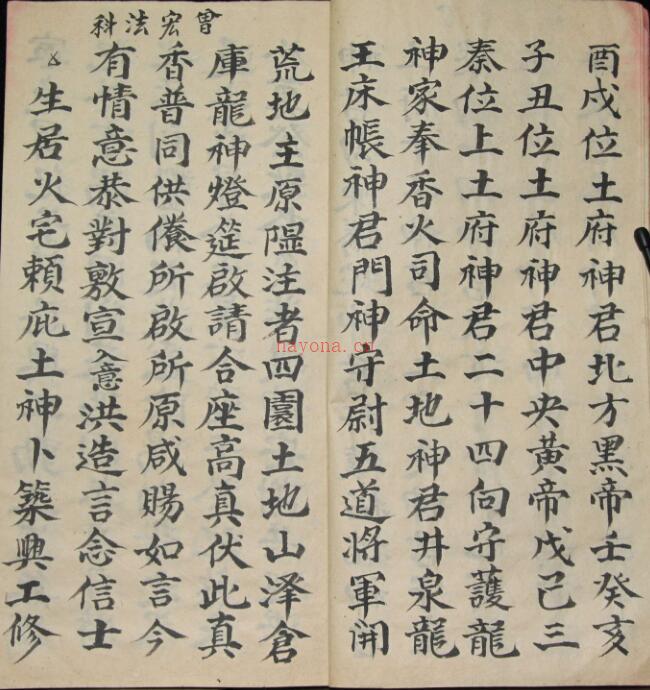 酉戌位土府神君北方黑帝壬癸亥
子丑位土府神君中央黃帝戊己三
秦位上土府神君二十四向守護龍
神家奉香火司命土地神君井泉龍
王床帳神君門神守尉五道將軍開
荒地主原隰注者四園土地山泽倉
庫龍神燈筵啟請合座高真伏此真
香普同供養所啟所原咸賜如言今
有情意恭對敷宣入意洪造言念信士
生居火宅賴庇土神卜築興工修
曾宏法科
hayona.cn